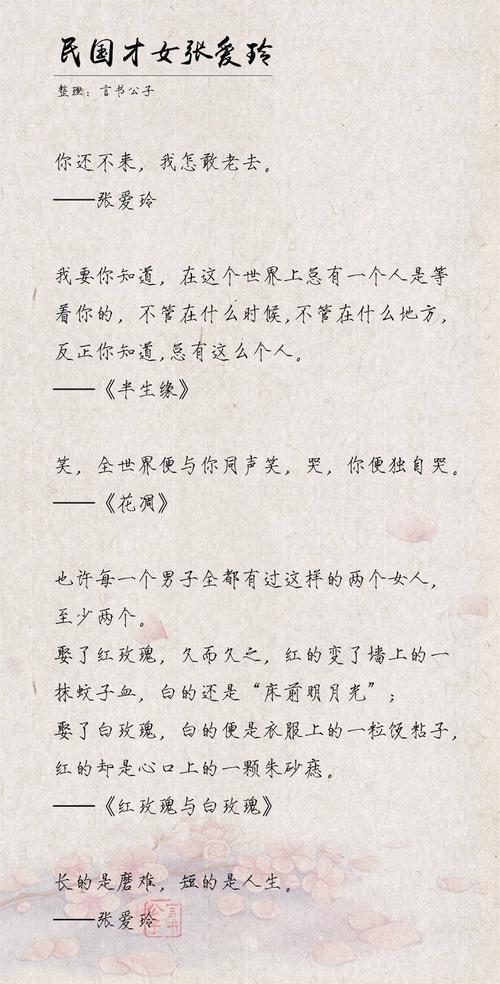 民国才女张爱玲
整理：言书公子
你还不来，我怎敢老去。
——张爱玲
我要你知道，在这个世界上总有一个人是等
着你的，不管在什么时候,不管在什么地方，
反正你知道,总有这么个人。
——《半生缘》
笑，全世界便与你同声笑，哭，你便独自哭。
——《花凋》
也许每一个男子全都有过这样的两个女人，
至少两个。
娶了红玫瑰，久而久之，红的变了墙上的一
抹蚊子血，白的还是“床前明月光”；
娶了白玫瑰，白的便是衣服上的一粒饭粘子，
红的却是心口上的一颗朱砂痣。
——《红玫瑰与白玫瑰》
长的是磨难，短的是人生。
——张爱玲
言书
公子